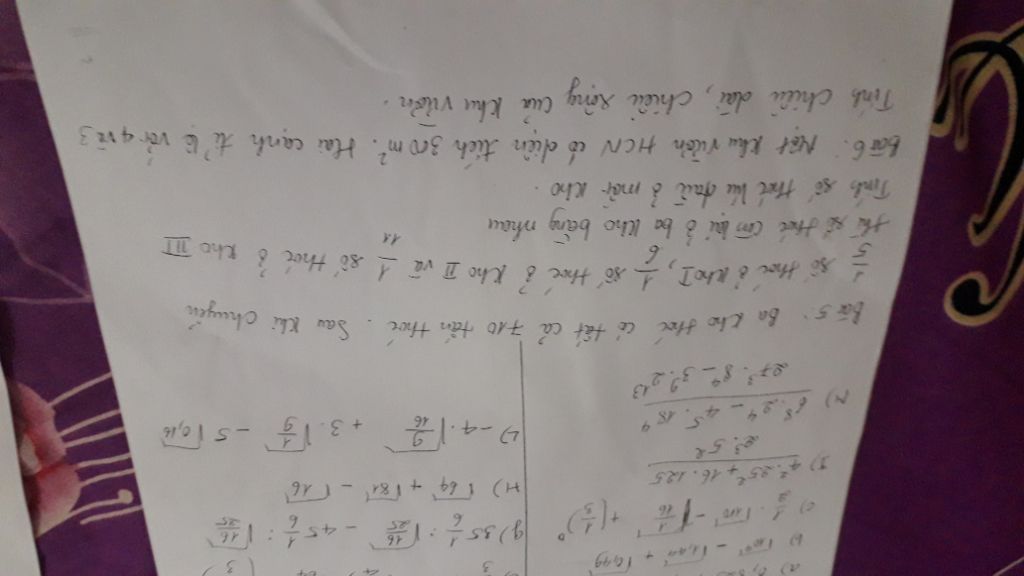 a) 0,
b) √10⁴ − √1,44 + √0,49
c) 1/2 . √100 − √(1/16) + (1/3)⁰
g) (4² . 25² + 16 . 125) / (2³ . 5²)
(6⁸ . 2⁴ − 4⁵ . 18⁴) / (27³ . 8⁴ − 3⁹ . 2¹³)
g) 35 1/6 : √(16/25) − 45 1/6 : √(16/25)
H) √64 + √81 − √16
−4 . √(9/16) + 3 . √(1/9) − 5 √0,16
Bài 5: Ba kho thóc có tất cả 710 tấn thóc. Sau khi chuyển
1/5 số thóc ở kho I, 1/6 số thóc ở kho II và 1/11 số thóc ở kho III
thì số thóc còn lại ở ba kho bằng nhau
Tính số thóc lúc đầu ở mỗi kho.
Bài 6: Một khu vườn HCN có diện tích 300 m². Hai cạnh tỉ lệ với 4 và 3
Tính chiều dài, chiều rộng của khu vườn.